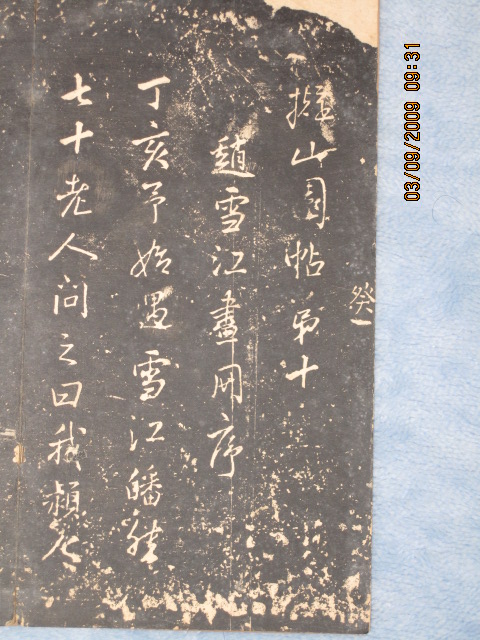 擬山園帖第十
趙雪江畫冊序
丁亥予始遇雪江皤然
七十老人問之曰我穎老
癸一
03/09/2009 09:31